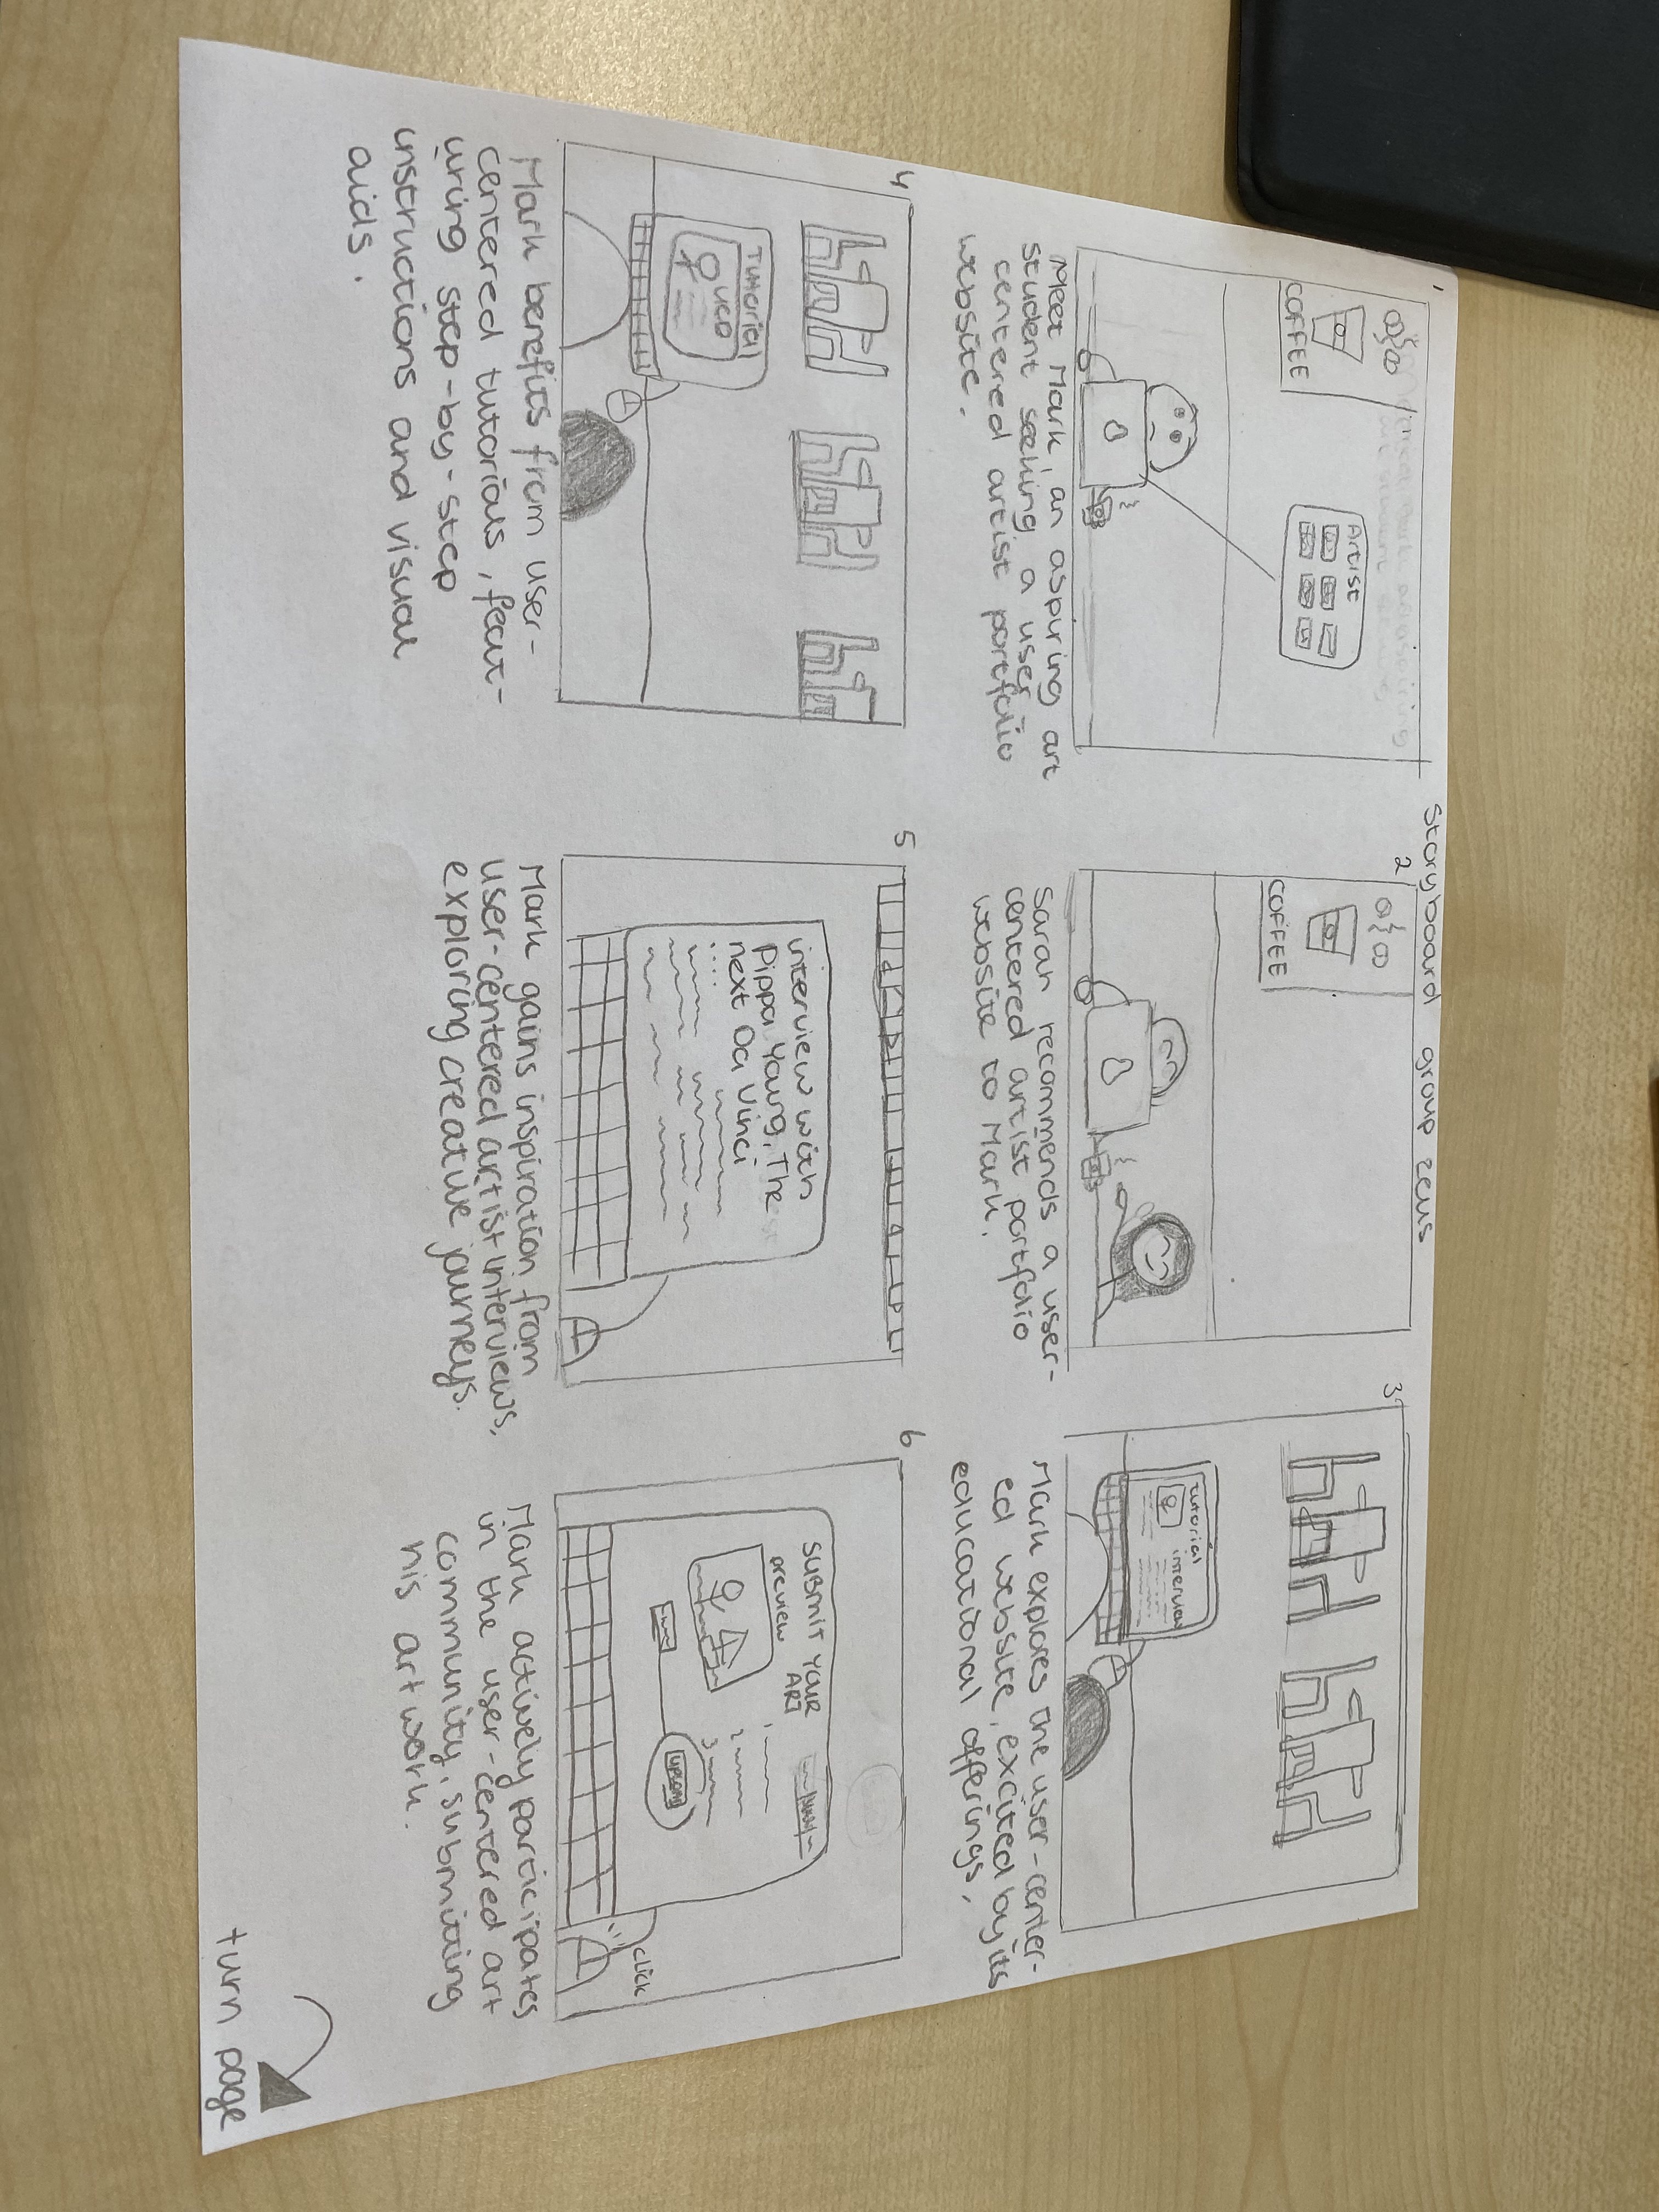 Storyboard group zeus
1
COFFEE
Artist
Meet Mark, an aspiring art
student seeking a user-
centered artist portfolio
website.
2
COFFEE
Sarah recommends a user-
centered artist portfolio
website to Mark.
3
tutorial
interview
Mark explores the user-center-
ed website, excited by its
educational offerings.
4
Tutorial
UCD
Mark benefits from user-
centered tutorials, feat-
uring step-by-step
instructions and visual
aids.
5
interview with
Pippa Young, The
next Da Vinci
Mark gains inspiration from
user-centered artist interviews,
exploring creative journeys.
6
SUBMIT YOUR
ART
preview
1
2
3
UPLOAD
CLICK
Mark actively participates
in the user-centered art
community, submitting
his artwork.
turn page